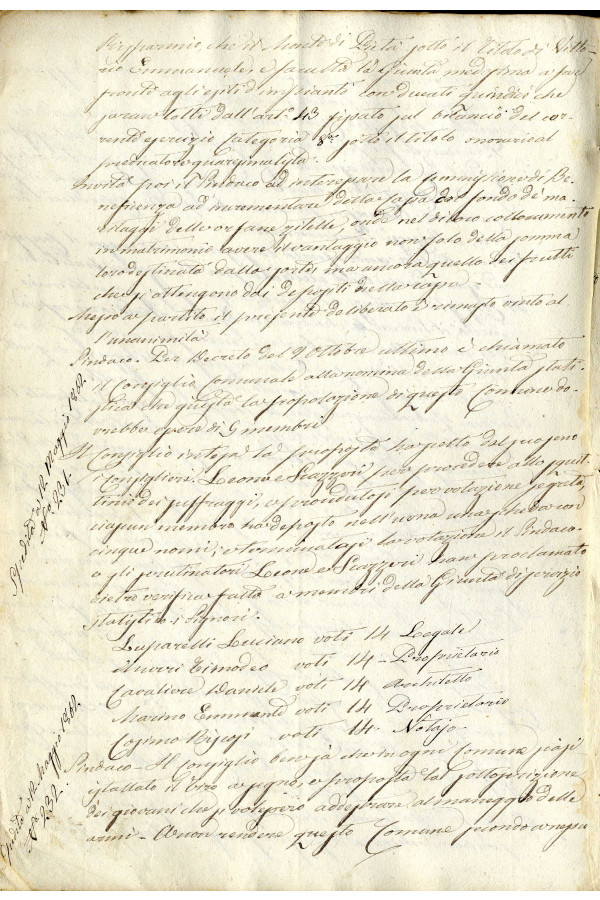 Risparmio, che il Monte di Pietà sotto il titolo di Vitto-
rio Emmanuele; e faculta la Giunta medesima a far
fronte agli esiti d'impianto con ducati quindici che
saran tolti dall'art.° 43 fissato sul bilancio del cor-
rente esercizio Categoria 8va sotto il titolo onorario al
predicatore quaresimalista.
Invita poi il Sindaco ad interessare la commissione di Be-
neficenza ad incrementare della cassa del fondo de' ma-
ritaggi delle orfane zitelle, onde nel di loro collocamento
in matrimonio avere il vantaggio non solo della somma
loro destinata dalla sorte, ma ancora quello dei frutti
che si ottengono dai depositi della cassa.
Messo a partito il presente deliberato è rimasto vinto al
l'unanimità
Sindaco. Per Decreto del 9 Ottobre ultimo è chiamato
il Consiglio Comunale alla nomina della Giunta stati-
stica che giusta la popolazione di questo Comune do-
vrebbe essere di 6 membri
Il Consiglio intesa la proposta ha scelto dal suo seno
i consiglieri Leone e Scazzeri per procedere allo squit-
tinio dei suffraggi, e procedutosi per votazione segreta,
ciascun membro ha deposto nell'urna una scheda con
cinque nomi; e terminatasi la votazione il Sindaco
e gli scrutinatori Leone e Scazzeri han proclamato
dietro verifica fatta a membri della Giunta di servizio
statistico i Signori.
Luparelli Luciano voti 14 Legale
Timodeo voti 14 - Proprietario
Cavaliere Daniele voti 14 Architetto
Marino Emmanuele voti 14 Proprietario
Cosimo voti 14. Notajo
Sindaco - Il Consiglio ben sa che in ogni Comune siasi
istallato il tiro a segno, e proposta la sottoscrizione
dei giovani che si volessero addestrare al maneggio delle
armi - A non rendere questo Comune secondo a nessu
Spedita a 12 Maggio 1862.
N.° 231.
Spedita a 12 Maggio 1862.
N.° 232.